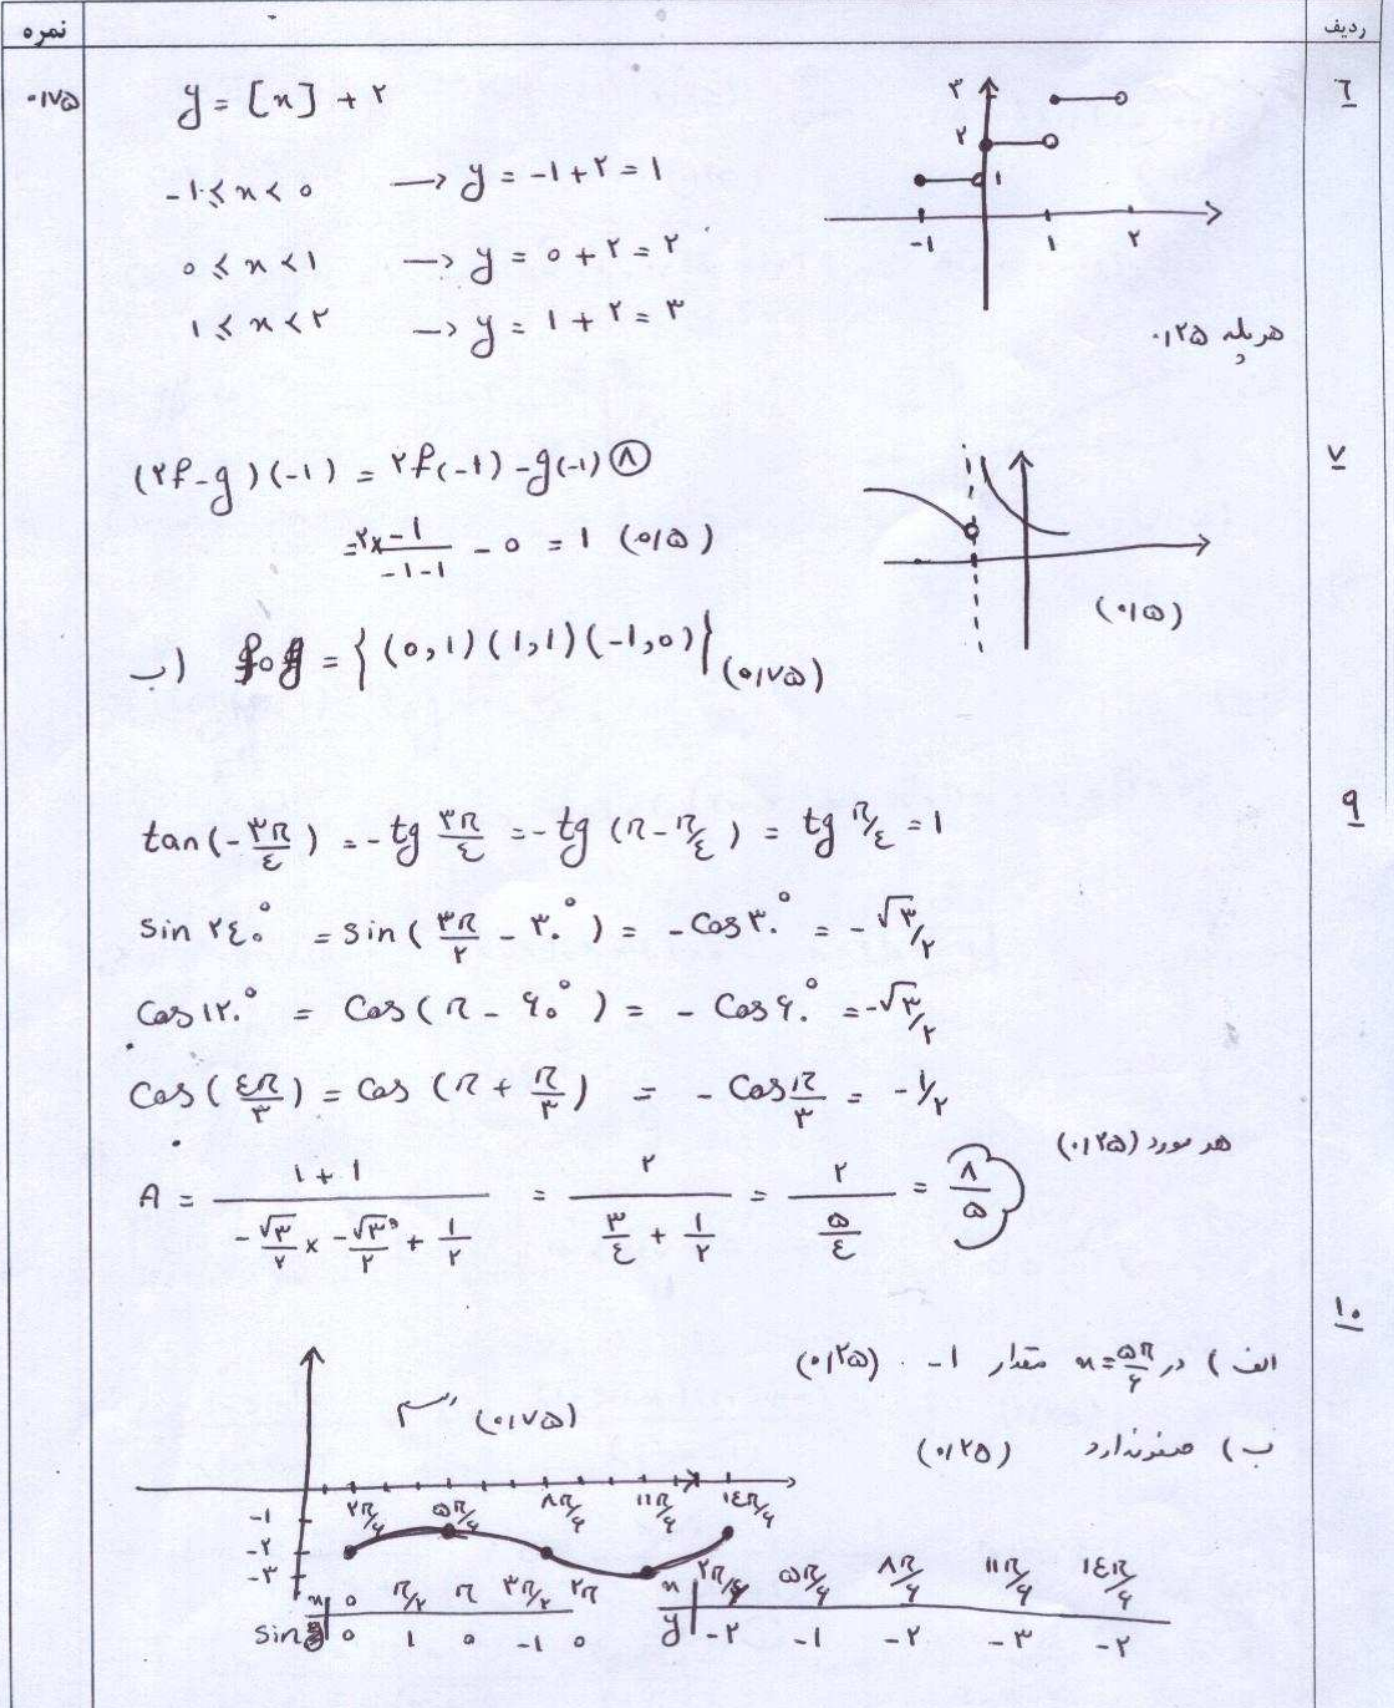 ردیف
نمره
۶
۰/۷۵
y = [x] + ۲
-۱ ≤ x < ۰ → y = -۱ + ۲ = ۱
۰ ≤ x < ۱ → y = ۰ + ۲ = ۲
۱ ≤ x < ۲ → y = ۱ + ۲ = ۳
۳
۲
۱
-۱ ۱ ۲
هر پله ۰/۲۵
۷
(۰/۵)
(۲f-g)(-۱) = ۲f(-۱) - g(-۱) ۸
= ۲× -۱/(-۱-۱) - ۰ = ۱ (۰/۵)
ب) fog = {(۰,۱)(۱,۱)(-۱,۰)} (۰/۷۵)
۹
tan(-۳π/۴) = -tg ۳π/۴ = -tg (π - π/۴) = tg π/۴ = ۱
sin ۲۴۰° = sin(۳π/۲ - ۳۰°) = -cos ۳۰° = -√۳/۲
cos ۱۲۰° = cos(π - ۶۰°) = -cos ۶۰° = -√۳/۲
cos(۴π/۳) = cos(π + π/۳) = -cos π/۳ = -۱/۲
هر مورد (۰/۲۵)
A = (۱ + ۱)/(-√۳/۲ × -√۳/۲ + ۱/۲) = ۲/(۳/۴ + ۱/۲) = ۲/(۵/۴) = ۸/۵
۱۰
الف) در x = ۵π/۶ مقدار -۱ (۰/۲۵)
ب) صفر ندارد (۰/۲۵)
رسم (۰/۷۵)
۲π/۶ ۵π/۶ ۸π/۶ ۱۱π/۶ ۱۴π/۶
-۱
-۲
-۳
x ۰ π/۲ π ۳π/۲ ۲π
sin ۰ ۱ ۰ -۱ ۰
x ۲π/۶ ۵π/۶ ۸π/۶ ۱۱π/۶ ۱۴π/۶
y -۲ -۱ -۲ -۳ -۲